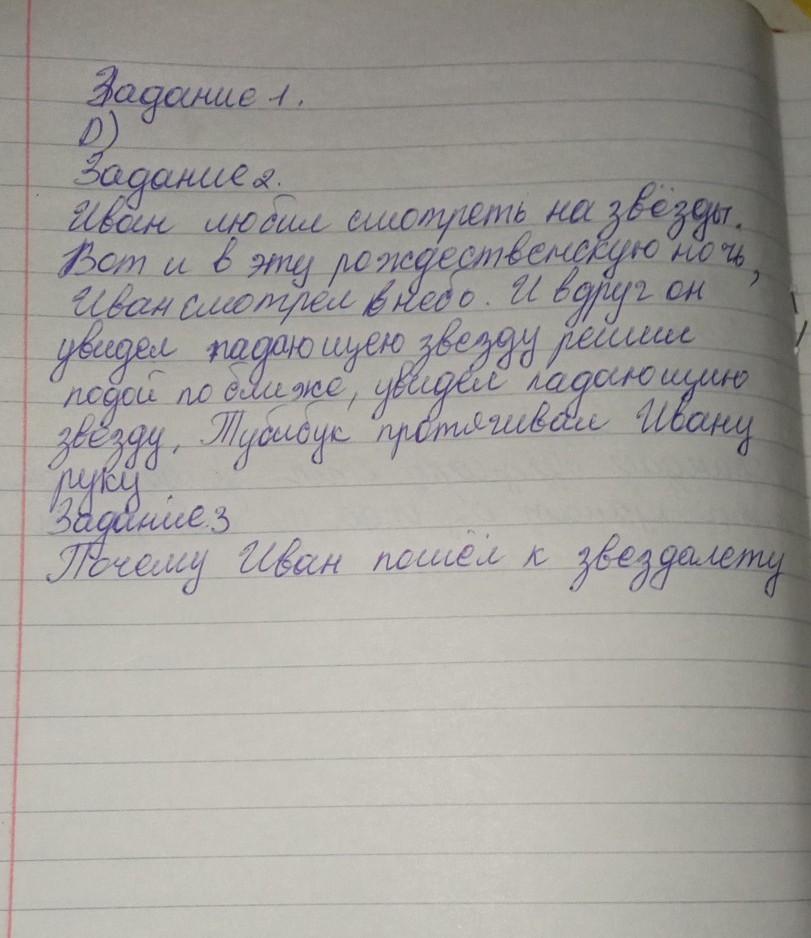 Задание 1.
D)
Задание 2.
Иван любил смотреть на звёзды.
Вот и в эту рождественскую ночь,
Иван смотрел в небо. И вдруг он
увидел падающею звезду решил
подой по ближе, увидел падающию
звезду, Тубибук протягивал Ивану
руку
Задание.3
Почему Иван пошёл к звездалету